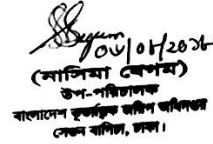 ০৮/০৮/২০১৮
(নাসিমা বেগম)
উপ-পরিচালক
বাংলাদেশ ভূতাত্ত্বিক জরিপ অধিদপ্তর
সেগুন বাগিচা, ঢাকা।